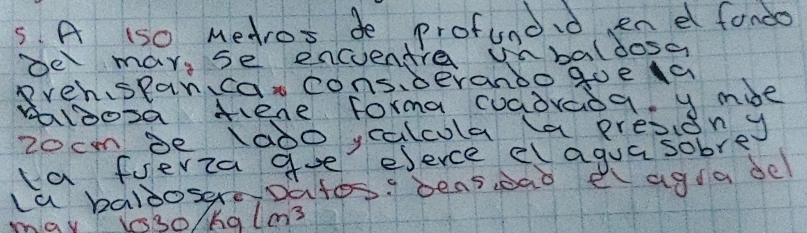 5. A 150 Medros de profundid en el fondo
Del mar, se encuentra un baldosa
prehispanica, considerando que la
baldosa tiene forma cuadrada. y mide
20cm de lado, calcula la presion y
la fuerza que eserce el agua sobre
la baldosa. Datos: Densidad el agua del
mar 1030/kg/m³